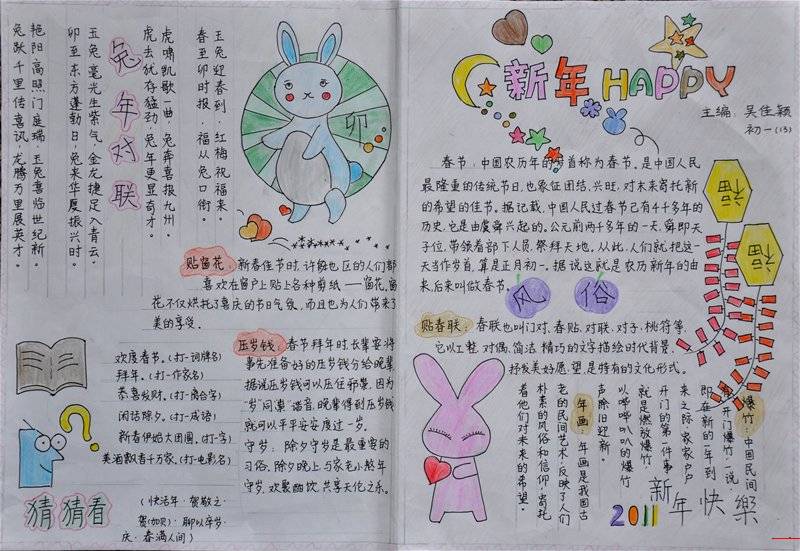 兔年对联
玉兔迎春到，红梅祝福来。
春至卯时报，福从兔口衔。
虎啸凯歌一曲，兔奔喜报九州。
虎去犹存猛劲，兔年更显奇才。
玉兔毫光生紫气，金龙捷足入青云。
卯至东方蓬勃日，兔来华夏振兴时。
艳阳高照门庭瑞，玉兔喜临世纪新。
兔跃千里传喜讯，龙腾万里展英才。
卯
贴窗花：新春佳节时，许多地区的人们都
喜欢在窗户上贴上各种剪纸——窗花，窗
花不仅烘托了喜庆的节日气氛，而且也为人们带来了
美的享受。
欢度春节。（打一词牌名）
拜年。（打一作家名）
恭喜发财。（打一离合字）
闲话除夕。（打一成语）
新春伊始大团圆。（打一字）
美酒飘香千万家。（打一电影名）
猜猜看
（快活年·贺敬之·
贺（加贝）·聊以卒岁·
庆·春满人间）
压岁钱：春节拜年时，长辈要将
事先准备好的压岁钱分给晚辈，
据说压岁钱可以压住邪祟，因为
“岁”同“祟”谐音，晚辈得到压岁钱
就可以平平安安度过一岁。
守岁：除夕守岁是最重要的
习俗，除夕晚上，与家老小熬年
守岁，欢聚酣饮，共享天伦之乐。
新年HAPPY
主编：吴佳颖
初一（13）
春节：中国农历年的岁首称为春节。是中国人民
最隆重的传统节日，也象征团结、兴旺，对未来寄托新
的希望的佳节。据记载，中国人民过春节已有4千多年的
历史，它是由虞舜兴起的。公元前两千多年的一天，舜即天
子位，带领着部下人员，祭拜天地。从此，人们就把这一
天当作岁首，算是正月初一。据说这就是农历新年的由
来，后来叫做春节。
福
福
风俗
贴春联：春联也叫门对、春贴、对联、对子、桃符等，
它以工整、对偶、简洁、精巧的文字描绘时代背景，
抒发美好愿望，是特有的文化形式。
爆竹：中国民间
有“开门爆竹”一说。
即在新的一年到
来之际，家家户户
开门的第一件事
就是燃放爆竹，
以哔哔叭叭的爆竹
声除旧迎新。
年画：年画是我国古
老的民间艺术，反映了人们
朴素的风俗和信仰，寄托
着他们对未来的希望。
2011新年快樂